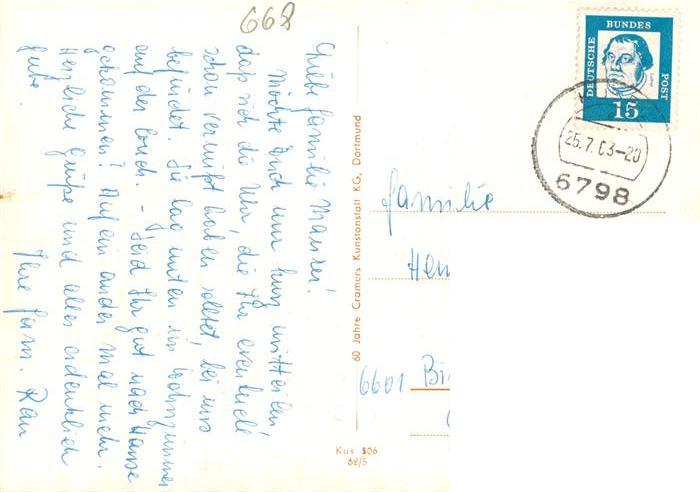 668
Liebe Familie Maurer!
Möchte Euch nur kurz mitteilen,
daß sich die Uhr, die Ihr eventuell
schon vermißt haben solltet, bei uns
befindet. Sie lag unten im Wohnzimmer
auf der Couch. - Seid Ihr gut nach Hause
gekommen? Auf ein ander Mal mehr.
Herzliche Grüße und alles erdenklich
Gute.
Ihre Fam. Rau
60 Jahre Cramers Kunstanstalt KG, Dortmund
Kus 506
62/5
DEUTSCHE BUNDES POST
15
25.7.63-20
6798
Familie
6601